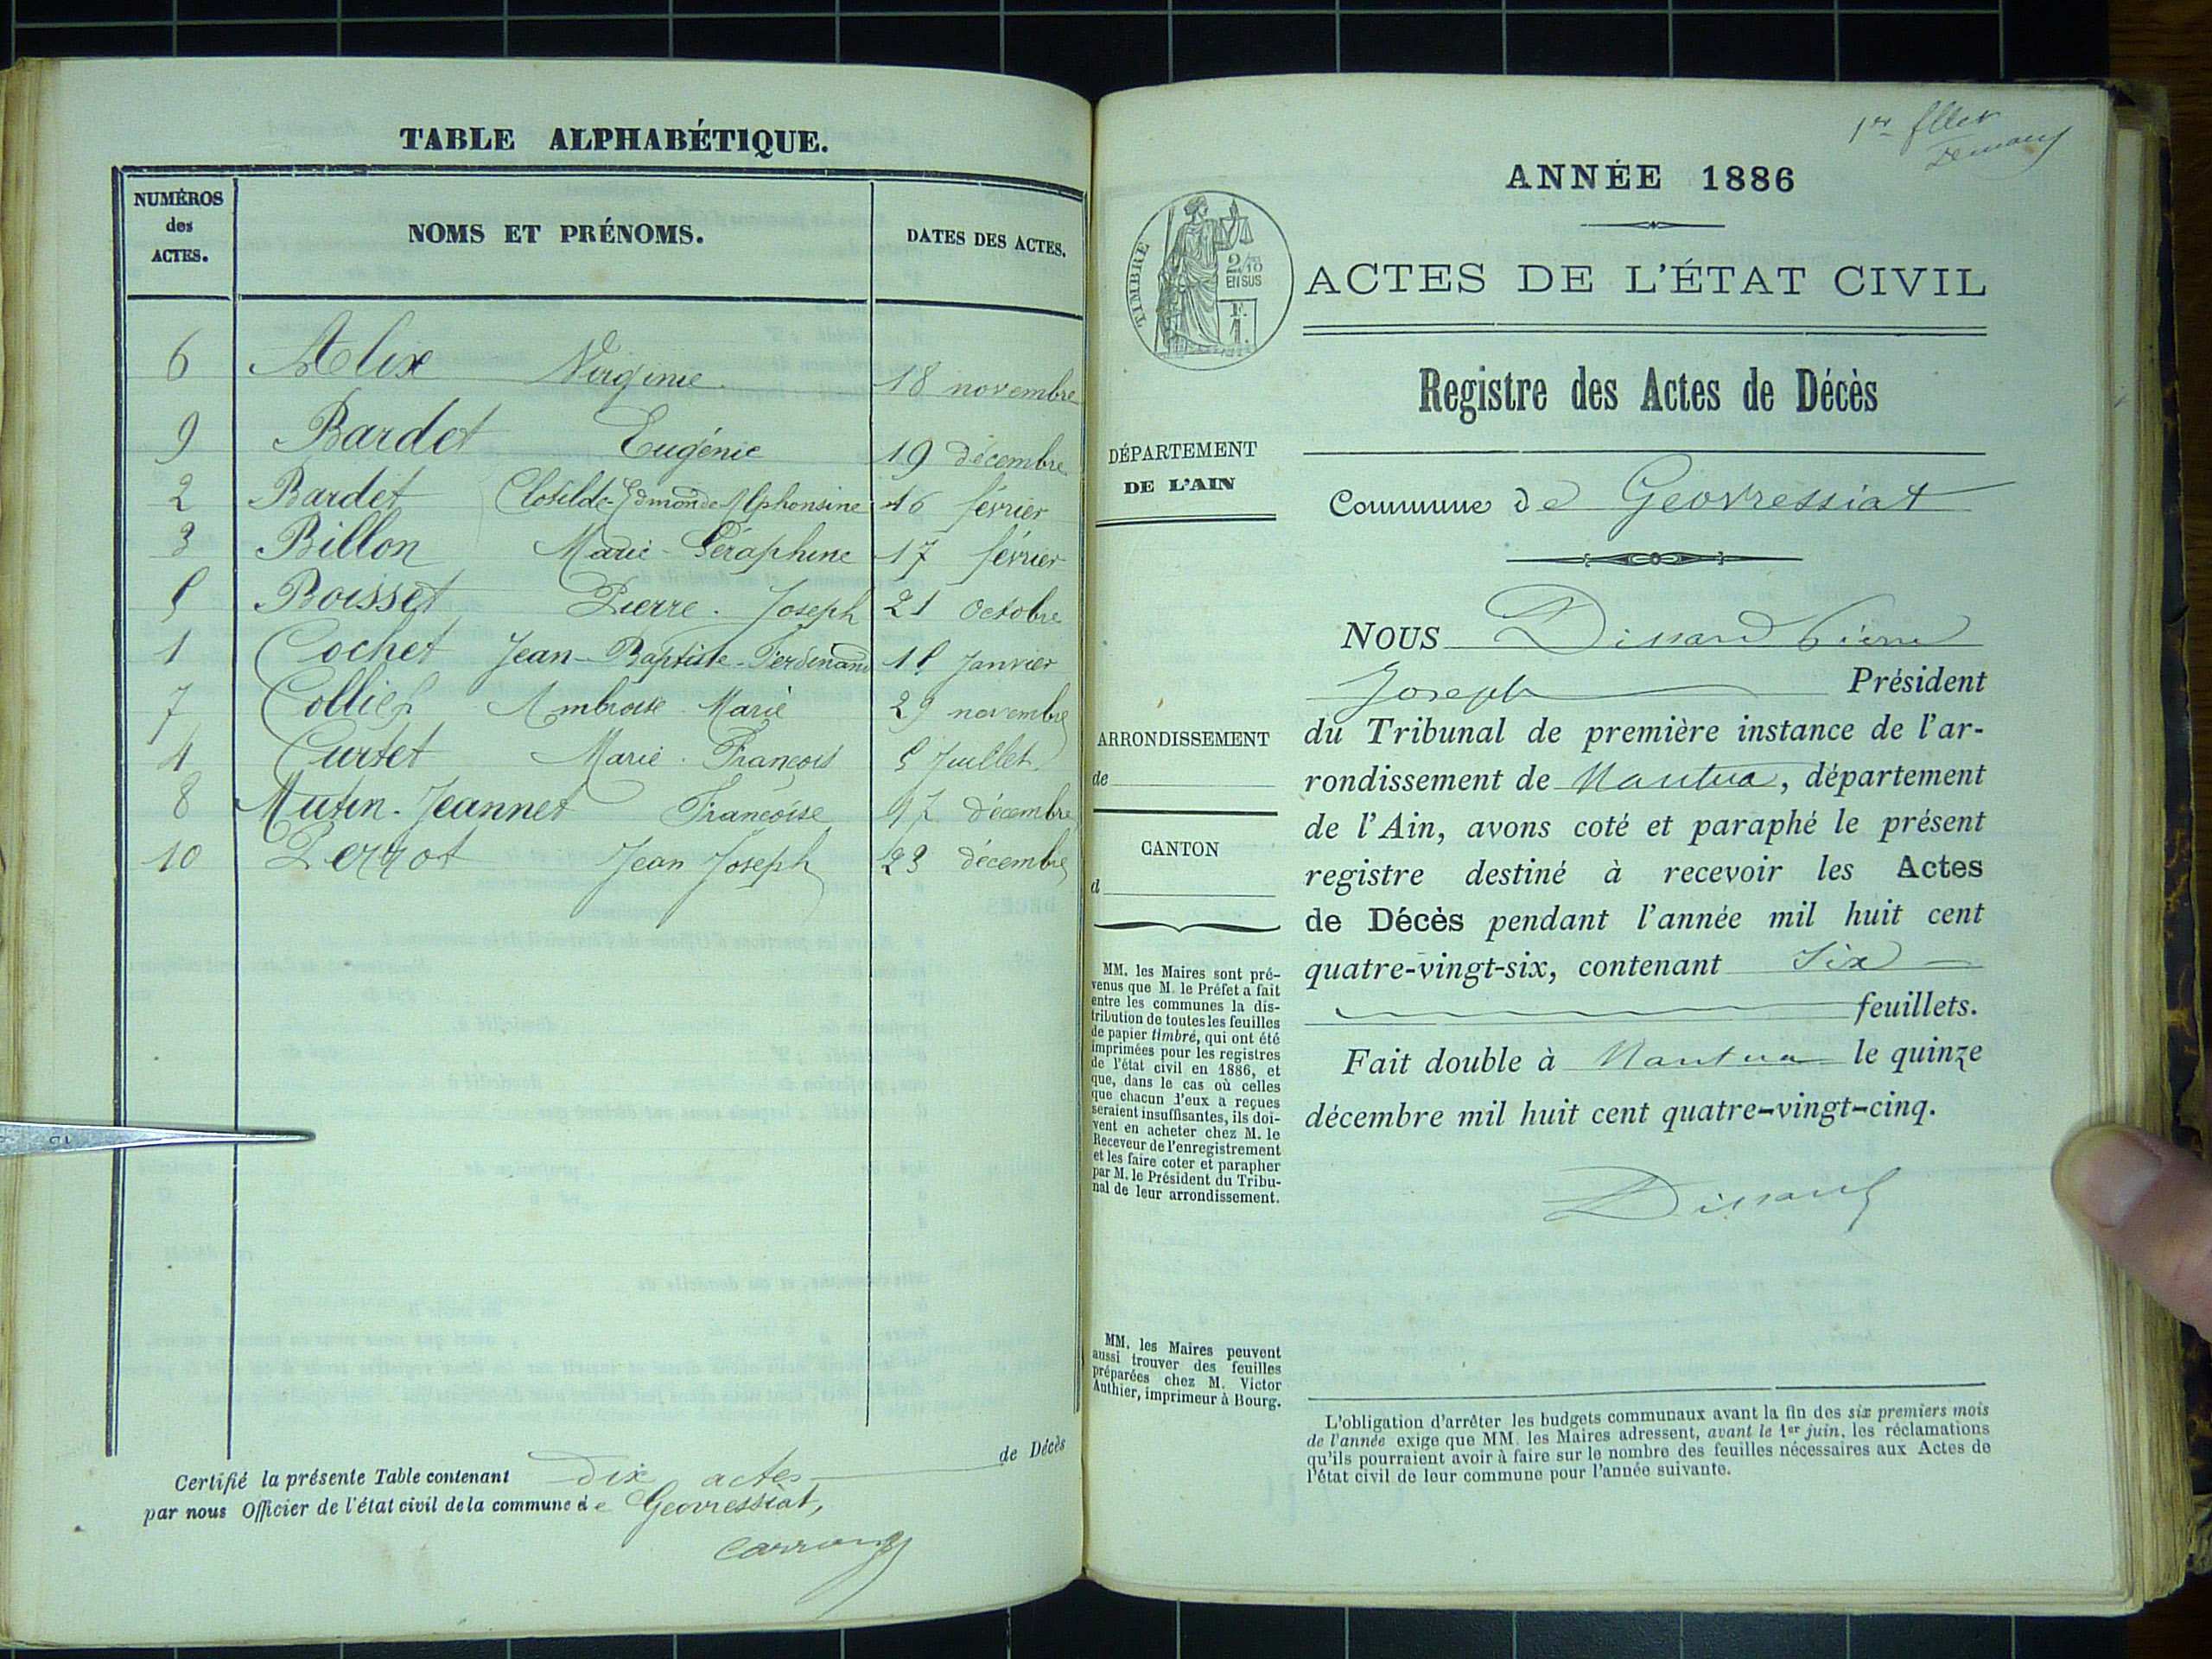 TABLE ALPHABÉTIQUE.
NUMÉROS des ACTES.
NOMS ET PRÉNOMS.
DATES DES ACTES.
6 Alix Virginie 18 novembre
9 Bardet Eugénie 19 décembre
2 Bardet Clotilde-Edmonde-Alphonsine 16 février
3 Billon Marie-Séraphine 17 février
5 Boisset Pierre-Joseph 21 octobre
1 Cochet Jean-Baptiste-Ferdinand 15 Janvier
7 Ambroise Marie 29 novembre
4 Curtet Marie-François 5 Juillet
8 Mutin-Jeannet Françoise décembre
10 Jean Joseph 23 décembre
Certifié la présente Table contenant dix actes de Décès
par nous Officier de l'état civil de la commune de Geovressiat,
1er
ANNÉE 1886
TIMBRE
2/10 EN SUS
F. 1.
ACTES DE L'ÉTAT CIVIL
Registre des Actes de Décès
DÉPARTEMENT
DE L'AIN
Commune de Geovressiat
NOUS Dissard Pierre
Joseph Président
du Tribunal de première instance de l'ar-
rondissement de Nantua, département
de l'Ain, avons coté et paraphé le présent
registre destiné à recevoir les Actes
de Décès pendant l'année mil huit cent
quatre-vingt-six, contenant Six
feuillets.
Fait double à Nantua le quinze
décembre mil huit cent quatre-vingt-cinq.
Dissard
ARRONDISSEMENT
de
CANTON
d
MM. les Maires sont pré-
venus que M. le Préfet a fait
entre les communes la dis-
tribution de toutes les feuilles
de papier timbré, qui ont été
imprimées pour les registres
de l'état civil en 1886, et
que, dans le cas où celles
que chacun d'eux a reçues
seraient insuffisantes, ils doi-
vent en acheter chez M. le
Receveur de l'enregistrement
et les faire coter et parapher
par M. le Président du Tribu-
nal de leur arrondissement.
MM. les Maires peuvent
aussi trouver des feuilles
préparées chez M. Victor
Authier, imprimeur à Bourg.
L'obligation d'arrêter les budgets communaux avant la fin des six premiers mois
de l'année exige que MM. les Maires adressent, avant le 1er juin, les réclamations
qu'ils pourraient avoir à faire sur le nombre des feuilles nécessaires aux Actes de
l'état civil de leur commune pour l'année suivante.